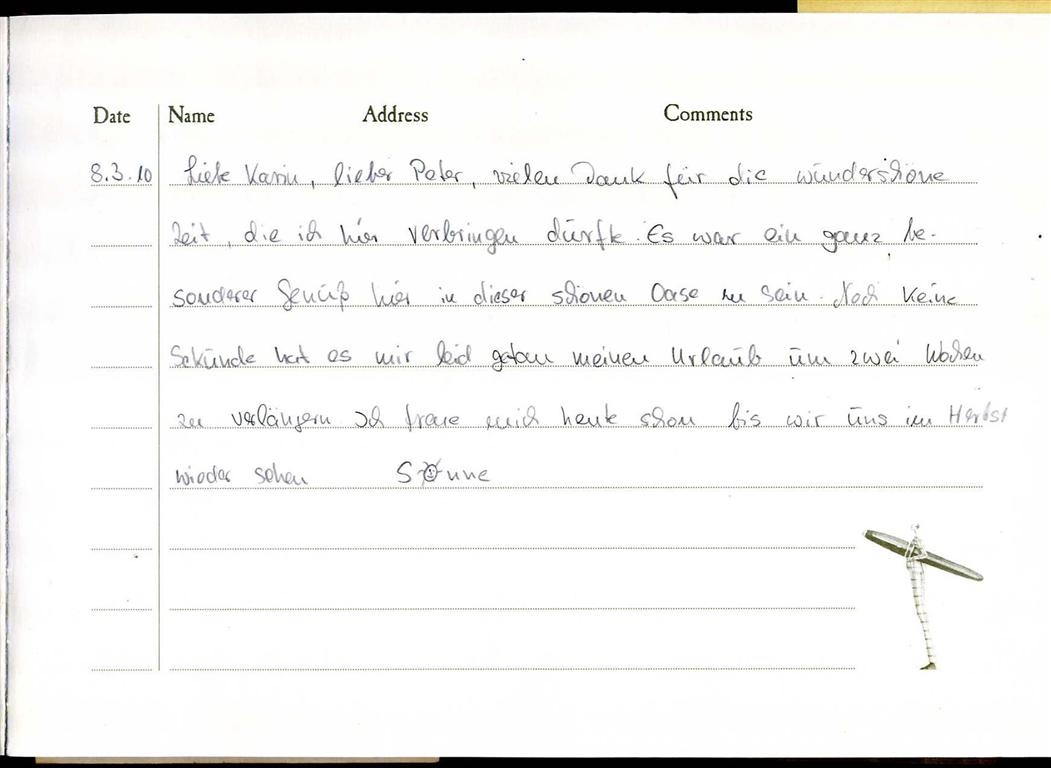 Date Name Address Comments
8.3.10 Liebe Karin, lieber Peter, vielen Dank für die wunderschöne
Zeit, die ich hier verbringen dürfte. Es war ein ganz be-
sonderer Genuß hier in dieser schönen Oase zu sein. Noch keine
Sekunde hat es mir leid getan meinen Urlaub um zwei Wochen
zu verlängern Ich freue mich heute schon bis wir uns im Herbst
wieder sehen Sonne